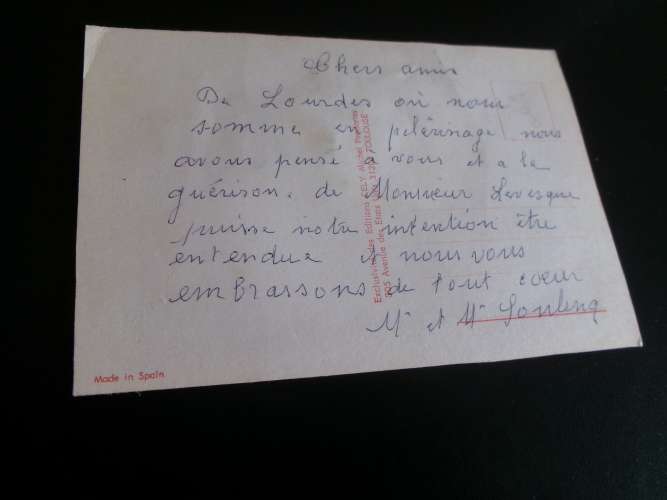 Chers amis
De Lourdes où nous
somme en pelèrinage nous
avons pensé à vous et a la
guérison. de Monsieur Levesque
puisse notre intention être
entendue et nous vous
embrassons de tout coeur
Mr et Mm
Exclusivité des Editions
205 Avenue des Etats Unis 31 TOULOUSE
Made in Spain